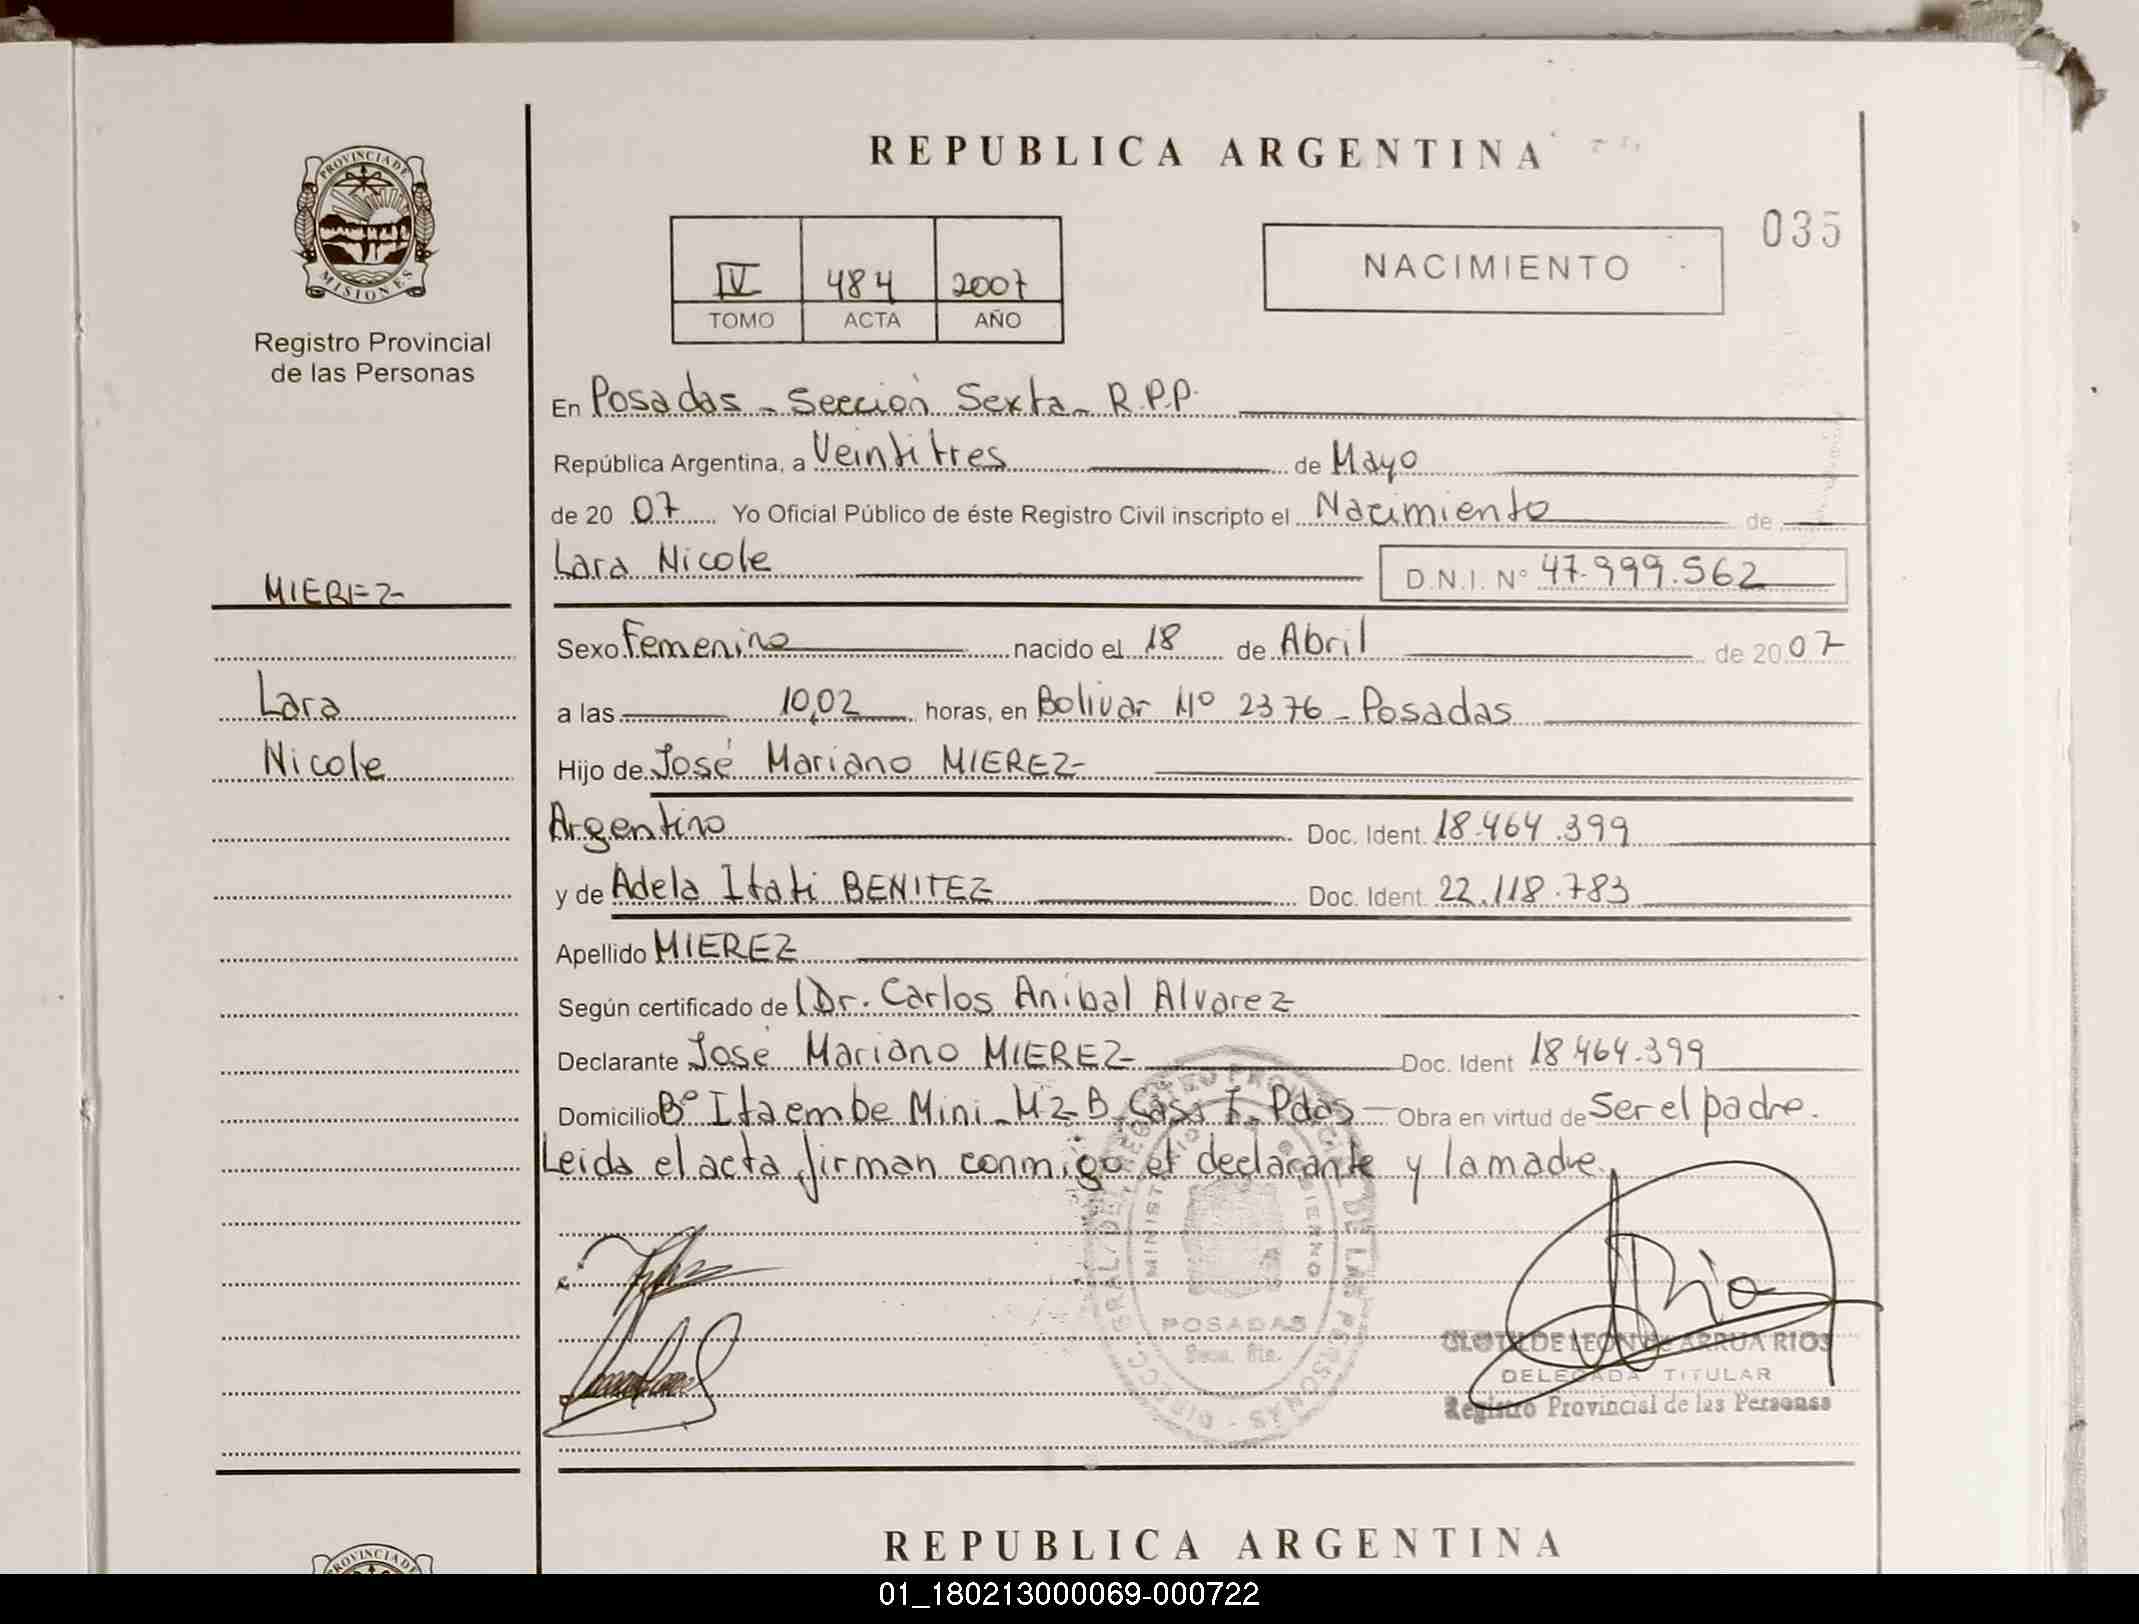 REPUBLICA ARGENTINA
PROVINCIA DE
MISIONES
Registro Provincial
de las Personas
035
IV 484 2007
TOMO ACTA AÑO
NACIMIENTO
En Posadas - Sección Sexta - R.P.P.
República Argentina, a Veintitres de Mayo
de 20 07 Yo Oficial Público de éste Registro Civil inscripto el Nacimiento de
Lara Nicole D.N.I. N° 47.999.562
MIEREZ
Lara
Nicole
Sexo Femenino nacido el 18 de Abril de 20 07
a las 10,02 horas, en Bolivar Nº 2376 - Posadas
Hijo de José Mariano MIEREZ
Argentino Doc. Ident. 18.464.399
y de Adela Itati BENITEZ Doc. Ident. 22.118.783
Apellido MIEREZ
Según certificado de Dr. Carlos Anibal Alvarez
Declarante José Mariano MIEREZ Doc. Ident 18.464.399
Domicilio Bº Itaembe Mini - Mz B Casa I - Pdas - Obra en virtud de Ser el padre.
Leida el acta firman conmigo el declarante y la madre.
DIRECC. GRAL. DEL REGISTRO PROVINCIAL DE LAS PERSONAS
MINISTERIO DE GOBIERNO
POSADAS
Secc. 6ta.
CLOTILDE LEON de ARRUA RIOS
DELEGADA TITULAR
Registro Provincial de las Personas
REPUBLICA ARGENTINA
PROVINCIA DE
01_180213000069-000722